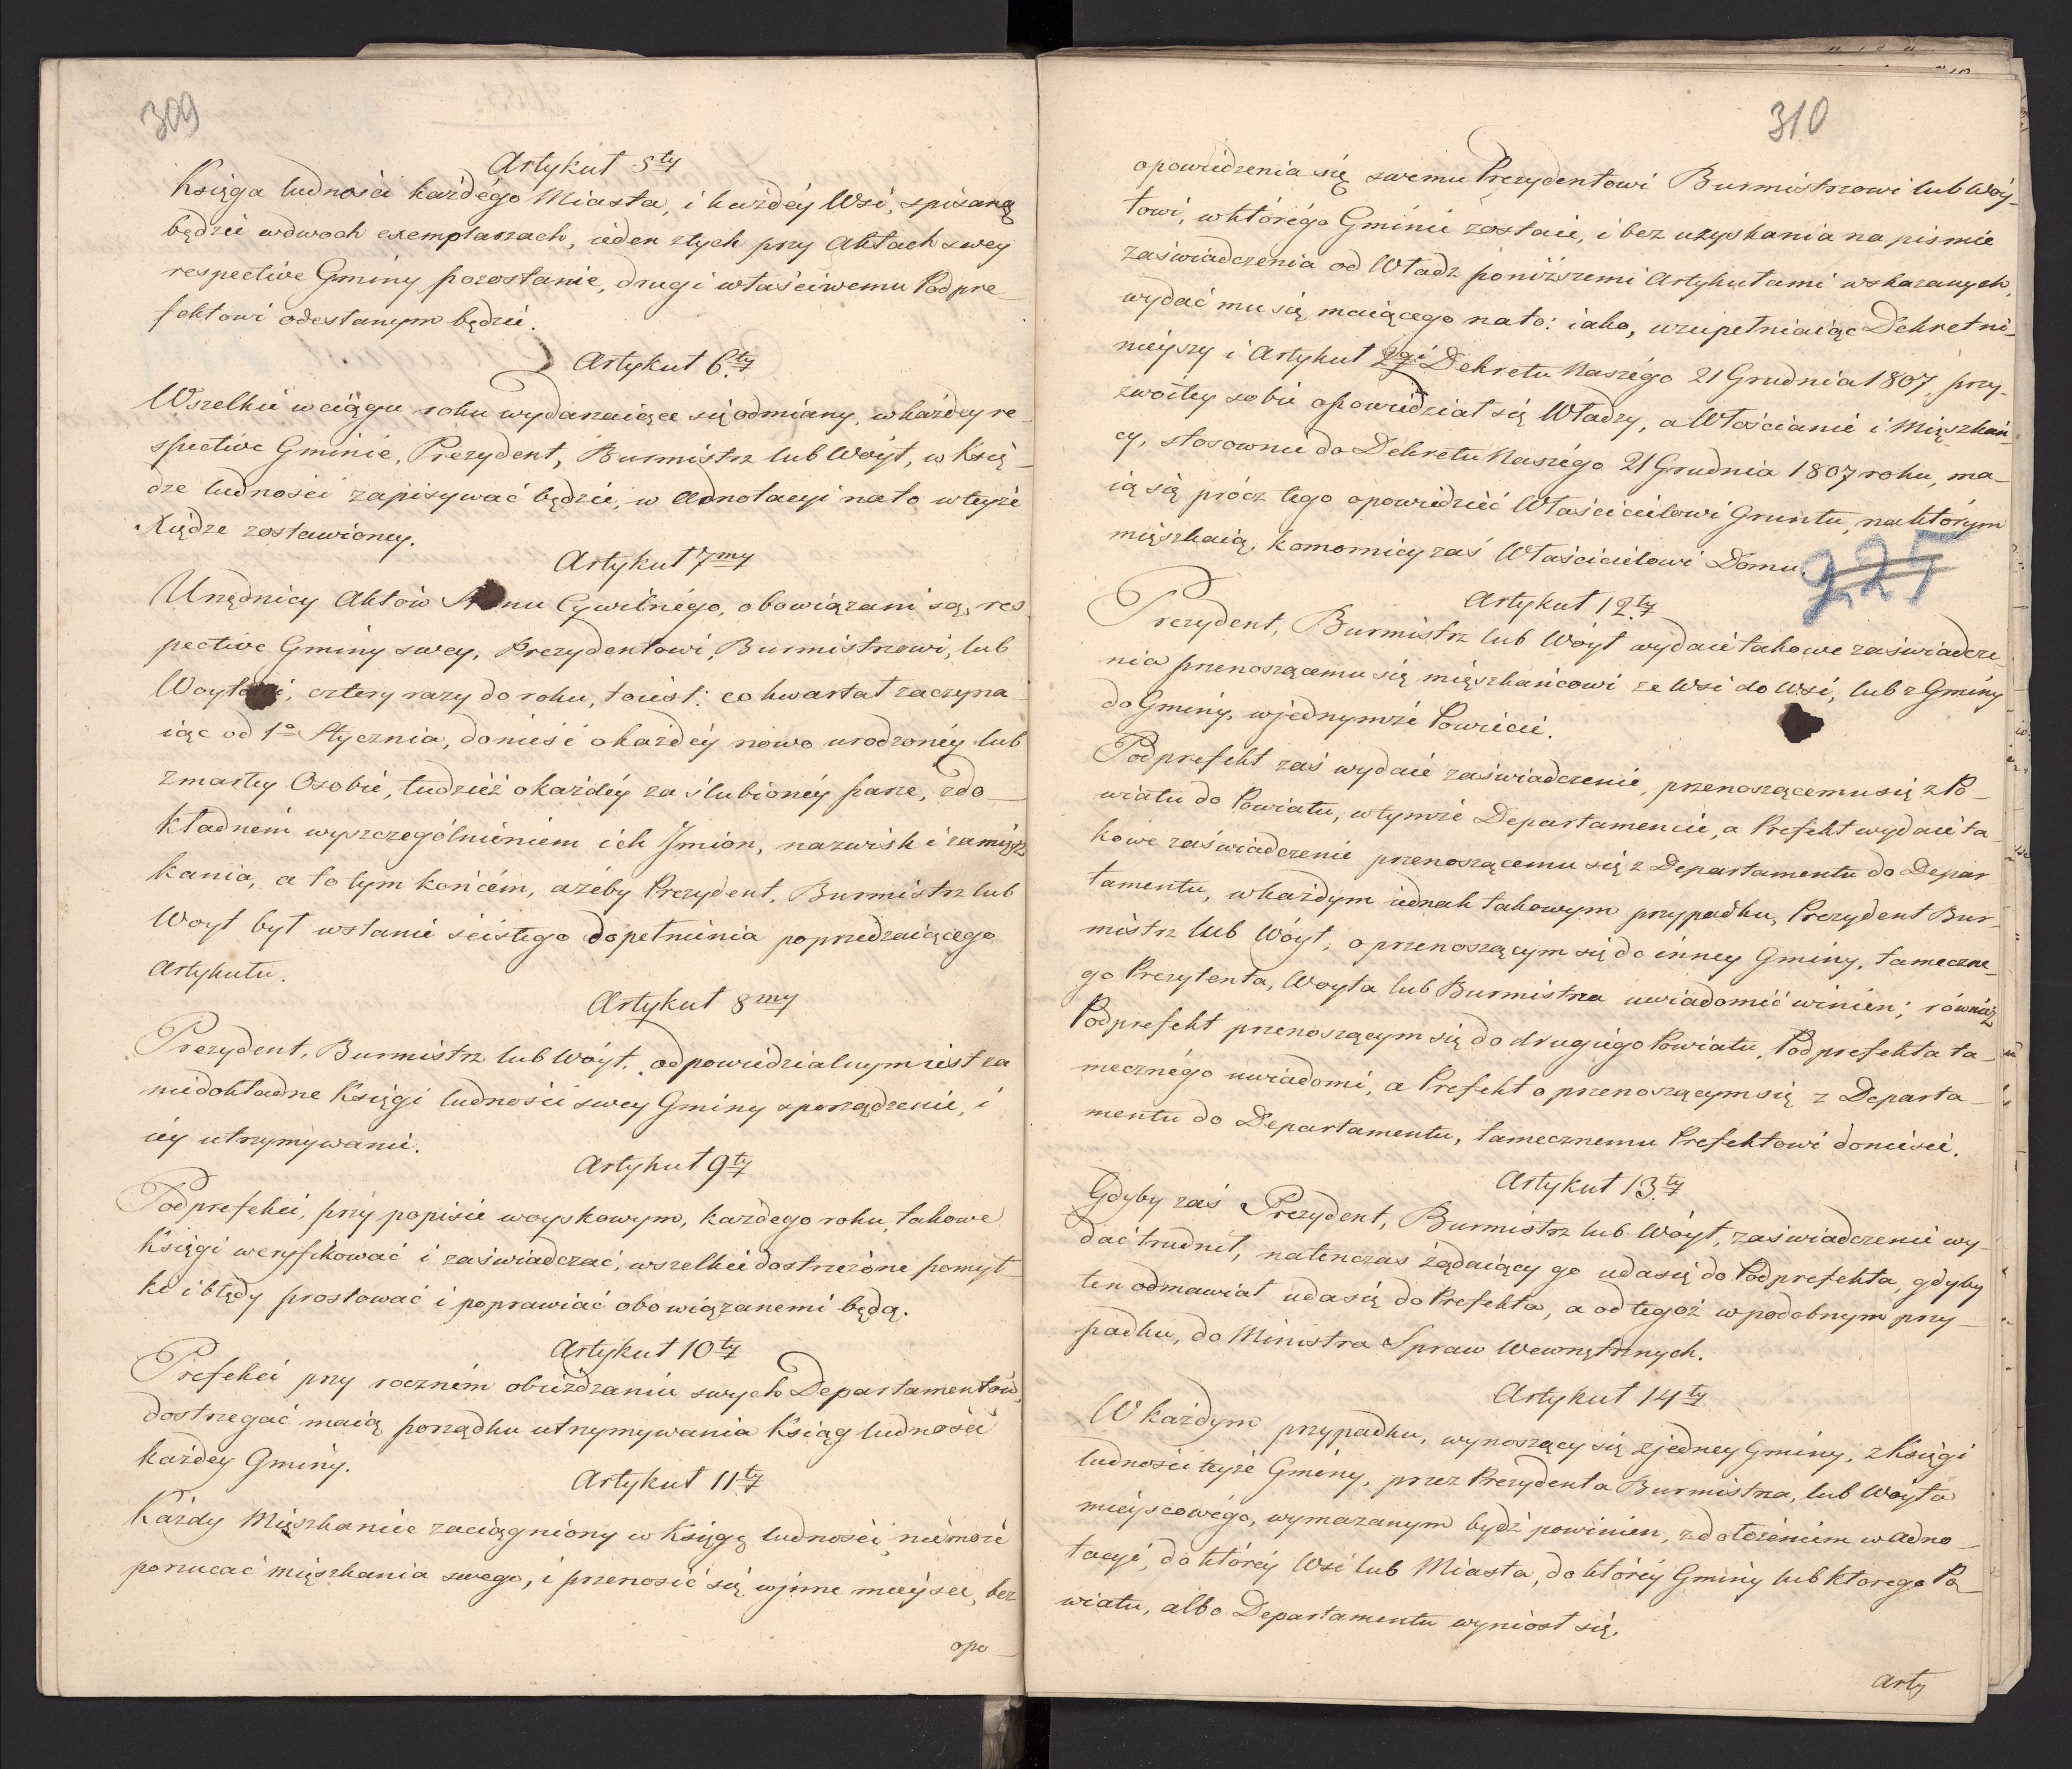 309
Artykuł 5ty
Księga ludności każdégo Miasta, i każdéy Wsi, spisaną
będzie wdwoch exemplarzach, ieden ztych przy Aktach swey
respective Gminy pozostanie, drugi właściwemu Podpre_
fektowi odesłanym będzie.
Artykuł 6ty
Wszelkie wciągu roku wydarzaiące się odmiany, wkażdey re_
spective Gminie, Prezydent, Burmistrz lub Wóyt, w Księ_
dze ludności zapisywać będzie, w Adnotacyi nato wteyże
Xiędze zostawioney.
Artykuł 7my
Urzędnicy Aktów Stanu Cywilnégo, obowiązani są, res
pective Gminy swey, Prezydentowi, Burmistrzowi, lub
Woytowi, cztery razy do roku, toiest: co kwartał zaczyna_
iąc od 1o Stycznia, donieść okażdéy nowo urodzonéy lub
zmarłey Osobie, tudzież okażdéy zaślubionéy parze, zdo_
kładnem wyszczególnieniem ich Jmion, nazwisk i zamięsz
kania, a to tym końcem, ażeby Prezydent, Burmistrz lub
Woyt był wstanie ścisłego dopełnienia poprzedzaiącego
Artykułu.
Artykuł 8my
Prezydent, Burmistrz lub Wóyt, odpowiedzialnym iest za
niedokładne Księgi ludności swey Gminy sporządzenie, i
iéy utrzymywanie.
Artykuł 9ty
Podprefekci, przy popisie woyskowym, każdego roku, takowe
Księgi weryfikować i zaświadczać, wszelkie dostrzeżone pomył_
ki i błędy prostować i poprawiać obowiązanemi będą.
Artykuł 10ty
Prefekci przy rocznem obieżdzaniu swych Departamentów,
dostrzegać maią porządku utrzymywania Ksiąg ludności
każdey Gminy.
Artykuł 11ty
Każdy Mięszkaniec zaciągniony w Księgę ludności, niemoże
porzucać mięszkania swego, i przenosić się wjnne mieysce, bez
opo_
310
opowiedzenia się swemu Prezydentowi Burmistrzowi lub Wóy_
towi, wktórégo Gminie zostaie, i bez uzyskania na pismie
zaświadczenia od Władz poniższemi Artykułami wskazanych,
wydać mu się maiącego nato: iako, uzupełniaiąc Dekret ni_
nieyszy i Artykuł 2gi Dekretu Naszégo 21 Grudnia 1807. przy_
zwoitey sobie opowiedział się Władzy, a Włościanie i Mięszkań_
cy, stosownie do Dekretu Naszégo 21 Grudnia 1807 roku, ma_
ią się prócz tego opowiedzieć Właścicielowi Gruntu, naktórym
mięszkaią, Komornicy zaś Właścicielowi Domu.
225
Artykuł 12ty
Prezydent, Burmistrz lub Wóyt wydaie takowe zaświadcze_
nia przenoszącemu się mięszkańcowi ze Wsi do Wsi, lub z Gminy
do Gminy, wjednymże Powiecie.
Podprefekt zaś wydaie zaświadczenie, przenoszącemu się z Po_
wiatu do Powiatu, wtymże Departamencie, a Prefekt wydaie ta
kowe zaświadczenie przenoszącemu się z Departamentu do Depar
tamentu, wkażdym iednak takowym przypadku, Prezydent Bur_
mistrz lub Wóyt, o przenoszącym się do inney Gminy, tameczne_
go Prezytenta, Woyta lub Burmistrza uwiadomić winien; również
Podprefekt przenoszącym się do drugiego Powiatu, Podprefekta ta_
mecznégo uwiadomi, a Prefekt o przenoszącym się z Departa_
mentu do Departamentu, tamecznemu Prefektowi doniesie.
Artykuł 13ty
Gdyby zaś Prezydent, Burmistrz lub Wóyt, zaświadczenie wy_
dać trudnił, natenczas żądaiący go uda się do Podprefekta, gdyby
ten odmawiał uda się do Prefekta, a od tegoż wpodobnym przy_
padku, do Ministra Spraw Wewnętrznych.
Artykuł 14ty
W każdym przypadku, wynoszący się zjedney Gminy, z Księgi
ludności teyże Gminy, przez Prezydenta Burmistrza, lub Woyta
mieyscowégo, wymazanym bydź powinien, zdołożeniem w adno_
tacyi, do któréy Wsi lub Miasta, do któréy Gminy lub ktorego Po_
wiatu, albo Departamentu wyniósł się.
Arty